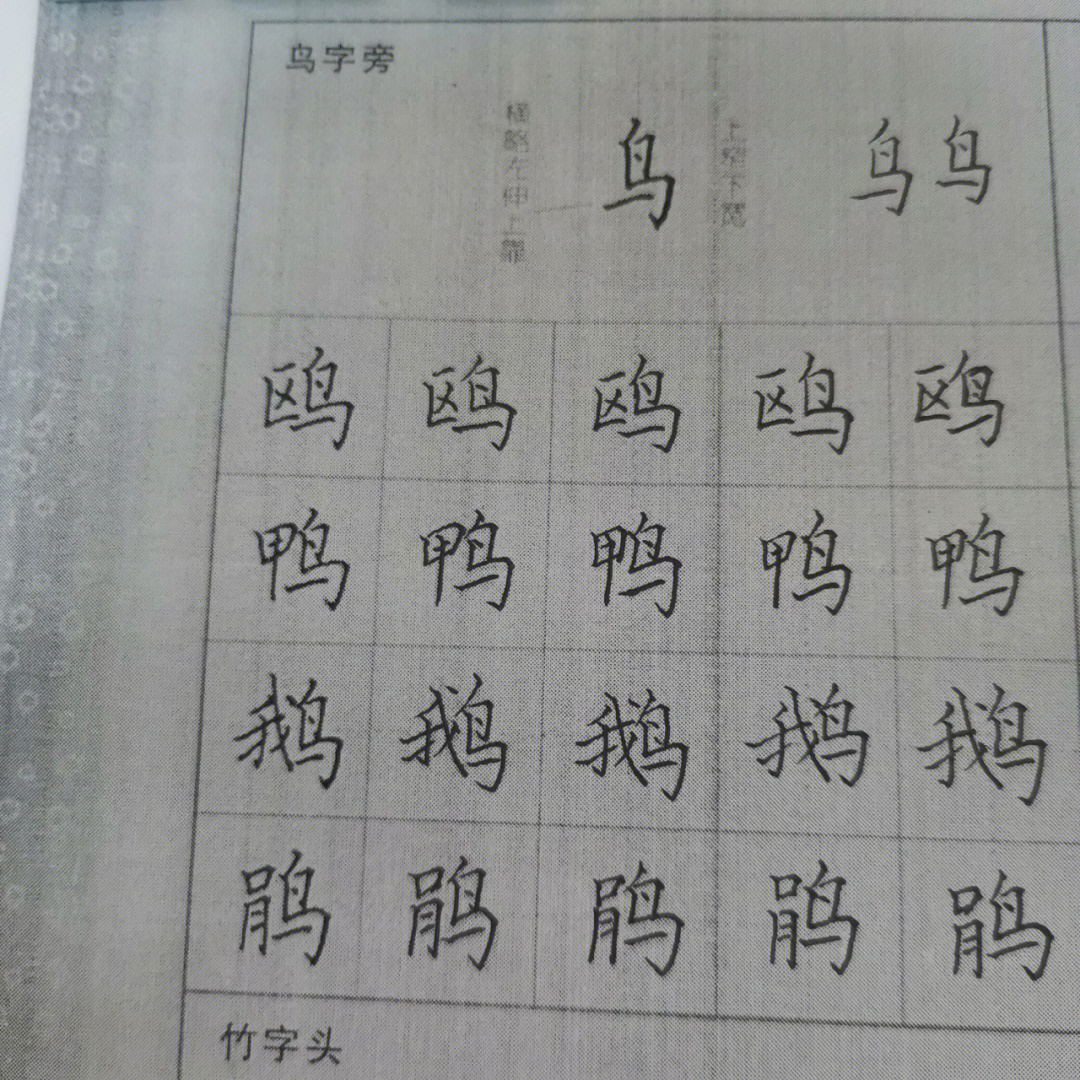 鸟字旁
横略左伸上靠
鸟
上窄下宽
鸟 鸟
鸥 鸥 鸥 鸥 鸥
鸭 鸭 鸭 鸭 鸭
鹅 鹅 鹅 鹅 鹅
鹃 鹃 鹃 鹃 鹃
竹字头